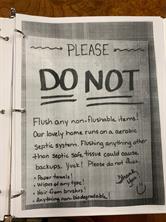 PLEASE
DO NOT
Flush any non-flushable items!
Our lovely home runs on a aerobic
septic system. Flushing anything other
than septic safe tissue could cause
backups. Yuck! Please do not flush:
• Paper towels!
• Wipes of any type!
• Hair from brushes!
• Anything non-biodegradable!
Thank
You!